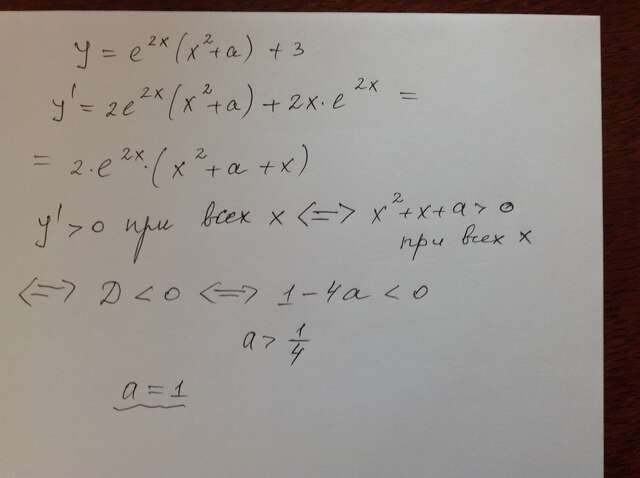 y = e^{2x}(x^2+a)+3
y' = 2e^{2x}(x^2+a)+2x·e^{2x} =
= 2·e^{2x}·(x^2+a+x)
y'>0 при всех x <=> x^2+x+a>0
при всех x
<=> D<0 <=> 1-4a<0
a> 1/4
a=1